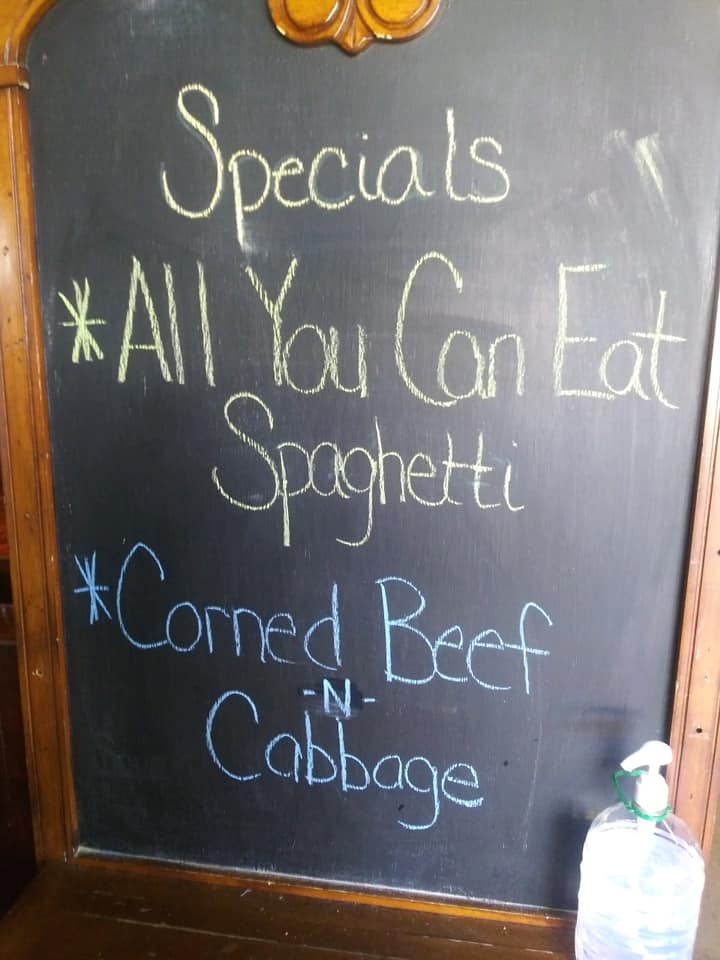 Specials
*All You Can Eat
Spaghetti
*Corned Beef
-N-
Cabbage